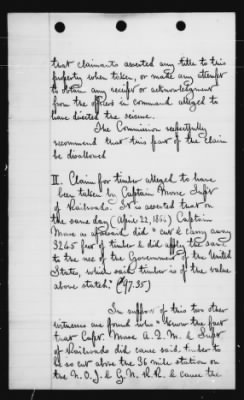 that claimants asserted any title to this
property when taken, or made any attempt
to obtain any receipt or acknowledgment
from the officers in command alleged to
have directed the seizure.
The Commission respectfully
recommend that this part of the claim
be disallowed
II. Claim for timber alleged to have
been taken by Captain Morse Supt
of Railroads. It is asserted that on
the same day (April 22, 1864) Captain
Morse as aforesaid did "cut & carry away
3265 feet of timber & did apply the same
to the use of the Government of the United
States, which said timber is of the value
above stated." (97.35)
In support of this two other
witnesses are found who "know the fact
that Capt. Morse A.Q.M. & Supt
of Railroads did cause said timber to
be so cut above the 36 mile station on
the N.O.J. & G.N. R.R. & cause the